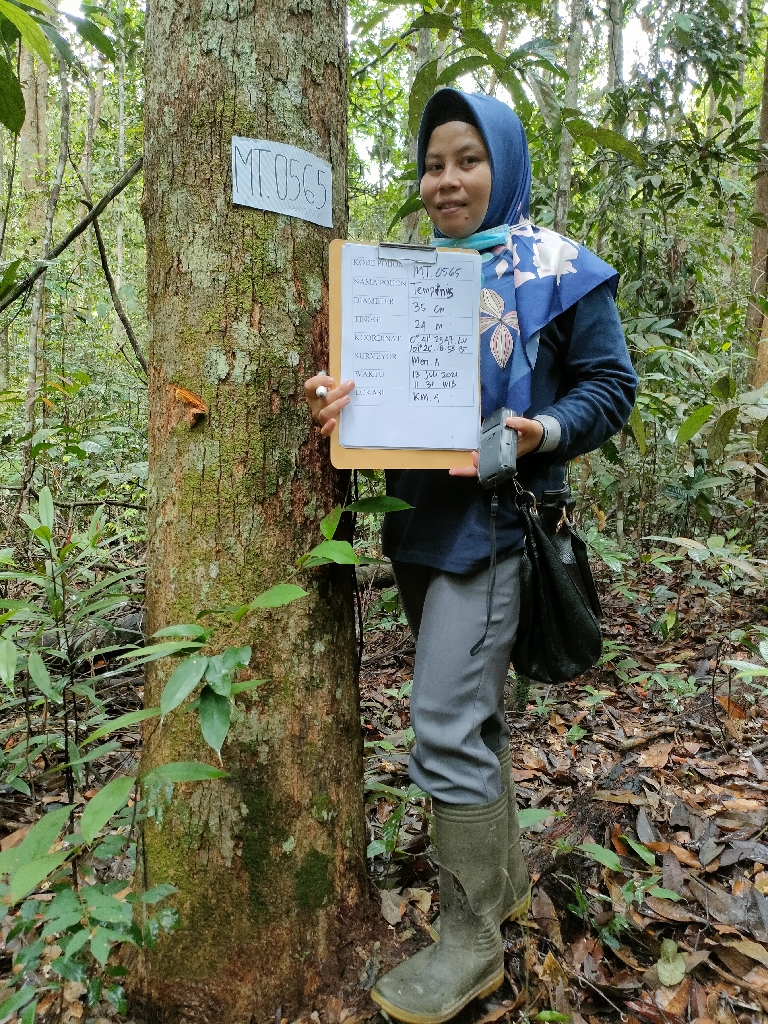 MT.0565
KODE POHON MT.0565
NAMA POHON Tempinis
DIAMETER 35 cm
TINGGI 24 m
KOORDINAT
SURVEYOR
WAKTU 13 Juli 2021
11.31 WIB
LOKASI KM.4